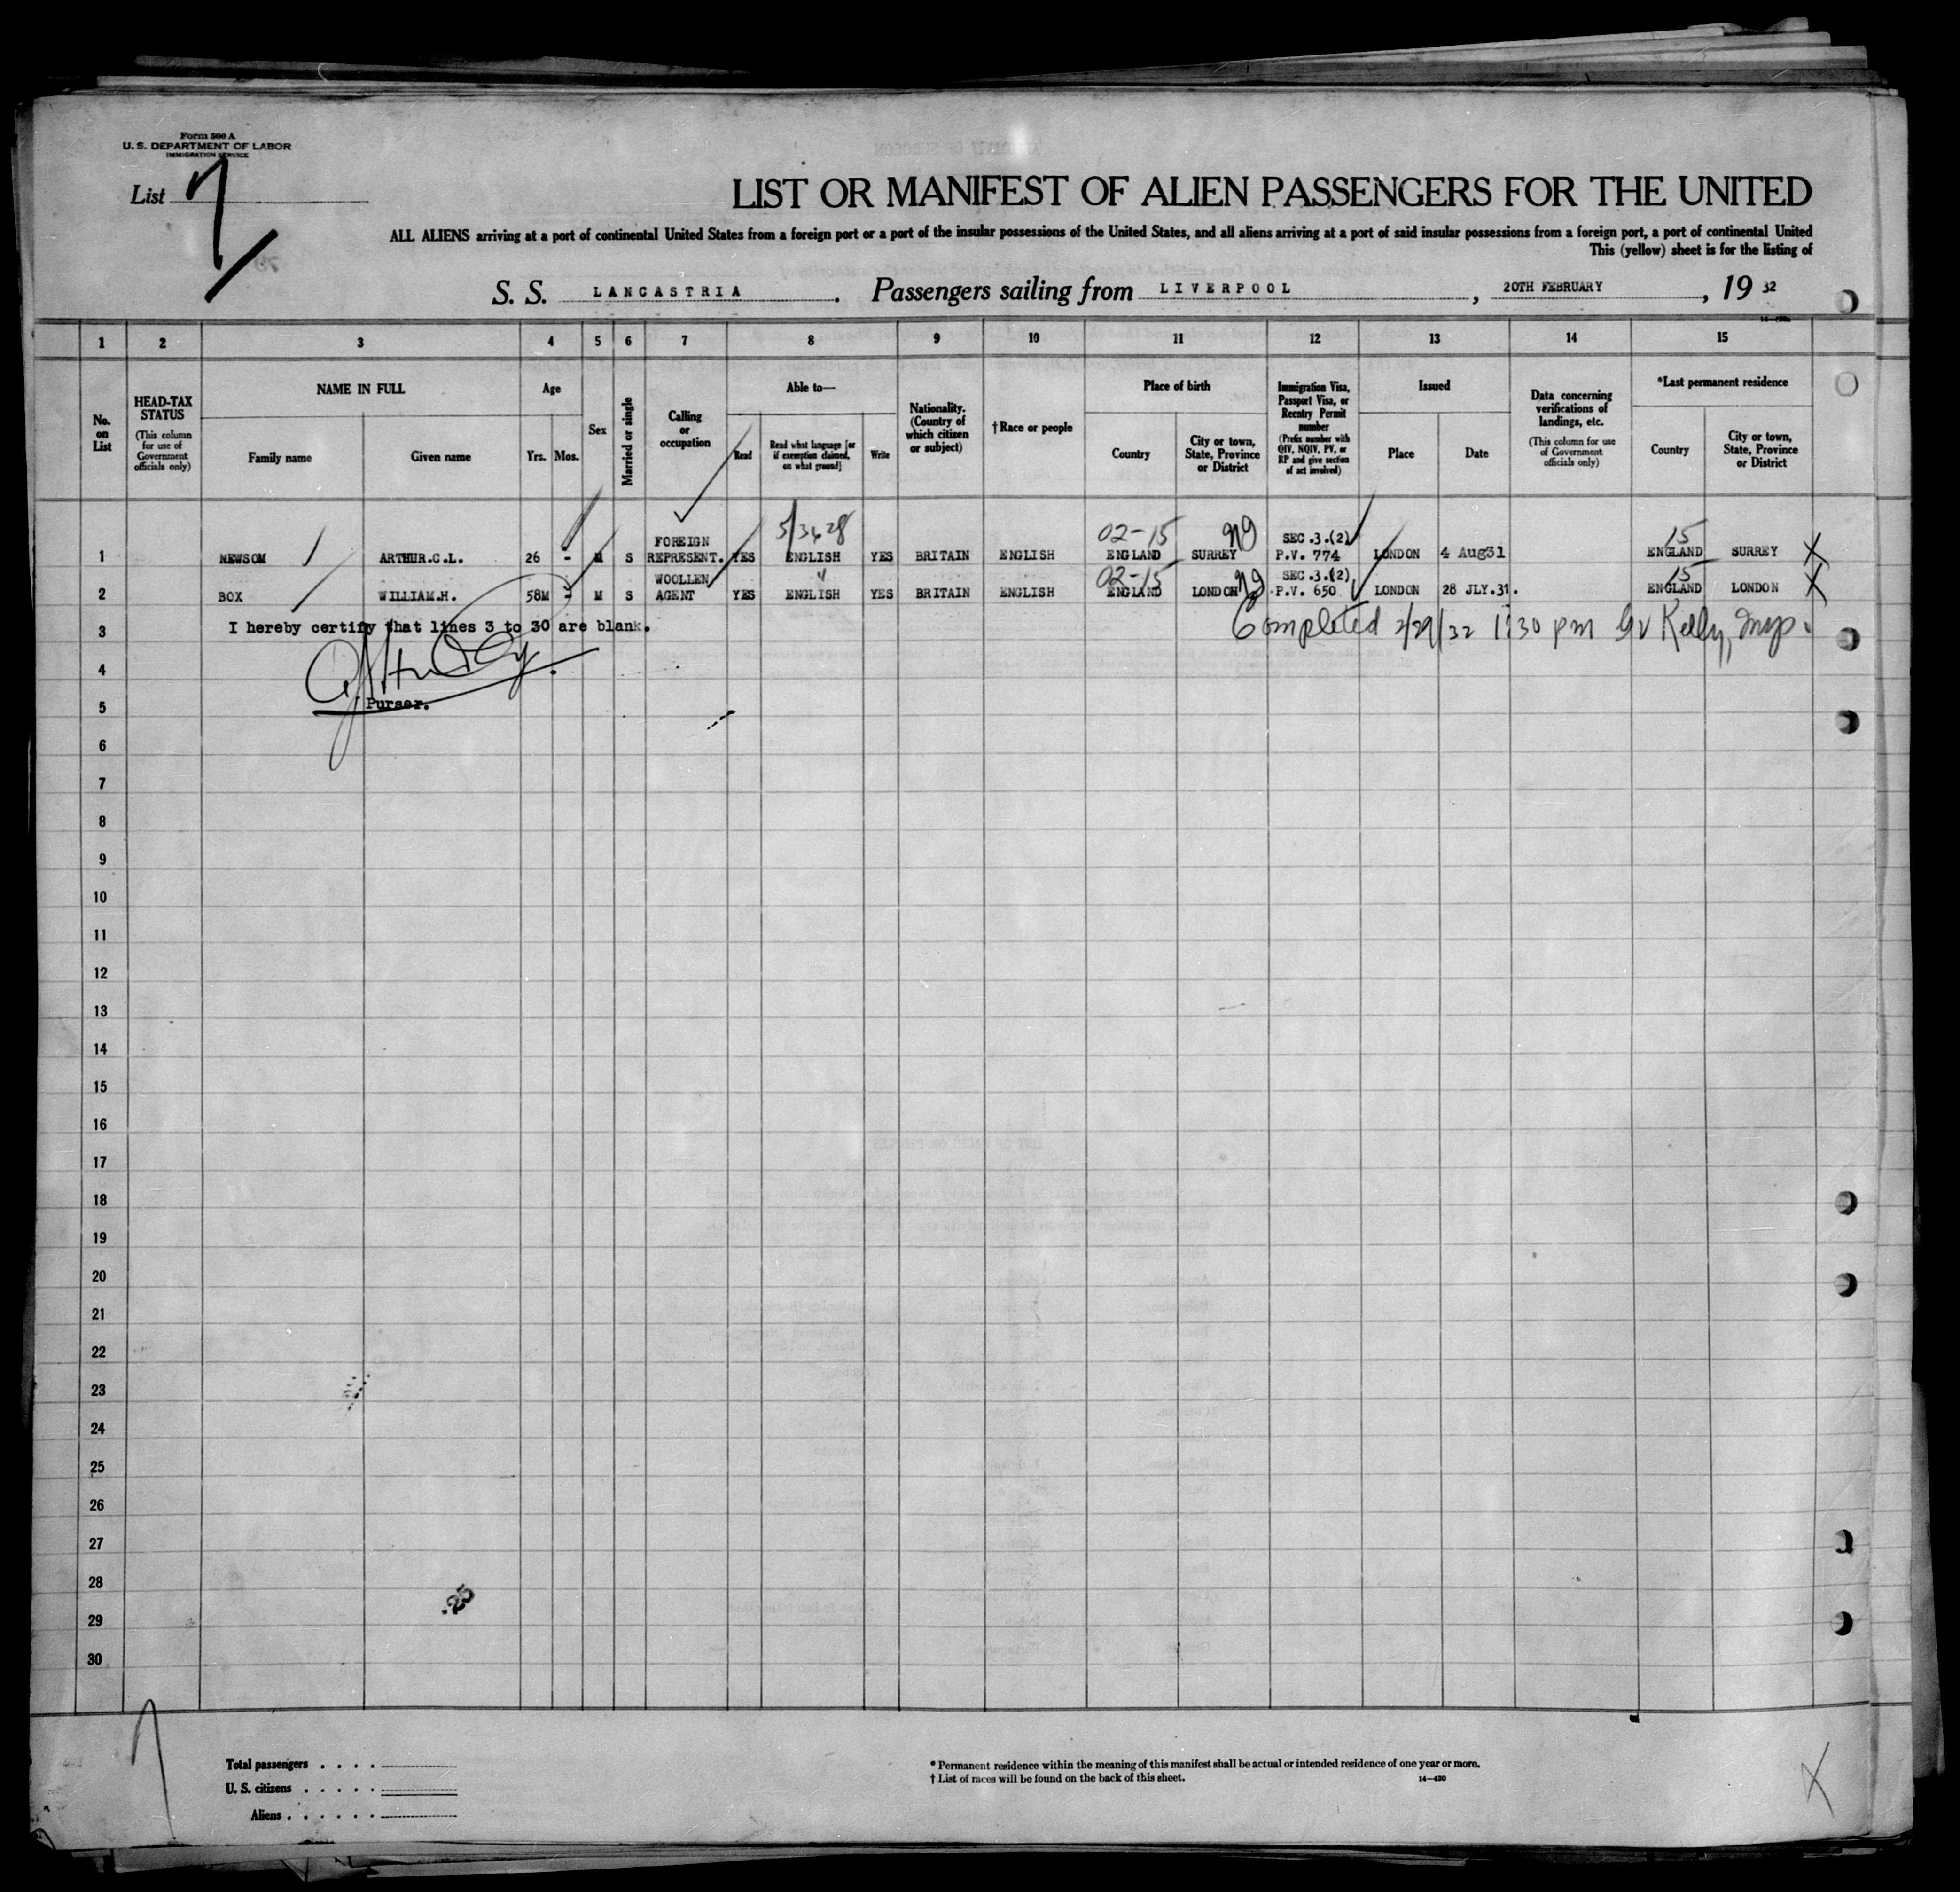 Form 500 A
U. S. DEPARTMENT OF LABOR
IMMIGRATION SERVICE
List 7
LIST OR MANIFEST OF ALIEN PASSENGERS FOR THE UNITED
ALL ALIENS arriving at a port of continental United States from a foreign port or a port of the insular possessions of the United States, and all aliens arriving at a port of said insular possessions from a foreign port, a port of continental United
This (yellow) sheet is for the listing of
S. S. LANCASTRIA. Passengers sailing from LIVERPOOL, 20TH FEBRUARY, 19 32
1 2 3 4 5 6 7 8 9 10 11 12 13 14 15
No. on List
HEAD-TAX STATUS
(This column for use of Government officials only)
NAME IN FULL
Family name
Given name
Age
Yrs.
Mos.
Sex
Married or single
Calling or occupation
Able to—
Read
Read what language [or if exemption claimed, on what ground]
Write
Nationality. (Country of which citizen or subject)
†Race or people
Place of birth
Country
City or town, State, Province or District
Immigration Visa, Passport Visa, or Reentry Permit number
(Prefix number with QIV, NQIV, PV, or RP and give section of act involved)
Issued
Place
Date
Data concerning verifications of landings, etc.
(This column for use of Government officials only)
*Last permanent residence
Country
City or town, State, Province or District
5/3428 02-15 15
FOREIGN SEC.3.(2)
1 NEWSOM ARTHUR.C.L. 26 - M S REPRESENT. YES ENGLISH YES BRITAIN ENGLISH ENGLAND SURREY P.V. 774 LONDON 4 Aug31 ENGLAND SURREY X
WOOLLEN " 02-15 SEC.3.(2) 15
2 BOX WILLIAM.H. 58M - M S AGENT YES ENGLISH YES BRITAIN ENGLISH ENGLAND LONDON P.V. 650 LONDON 28 JLY.31. ENGLAND LONDON X
3 I hereby certify that lines 3 to 30 are blank. Completed 2/29/32 11:30 pm Kelly, Insp.
4
5 Purser.
6
7
8
9
10
11
12
13
14
15
16
17
18
19
20
21
22
23
24
25
26
27
28
29
30
Total passengers . . . .
U. S. citizens . . . . .
Aliens . . . . . .
* Permanent residence within the meaning of this manifest shall be actual or intended residence of one year or more.
† List of races will be found on the back of this sheet.
14—430